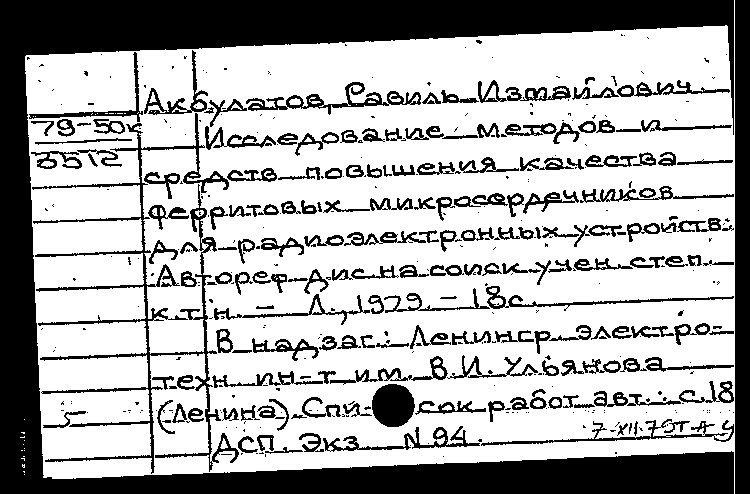 Акбулатов, Равиль Измайлович.
79-50к
5512
Исследование методов и
средств повышения качества
ферритовых микросердечников
для радиоэлектронных устройств:
Автореф. дис. на соиск. учен. степ.
к.т.н. – Л., 1979. – 18с.
В надзаг.: Ленингр. электро-
техн. ин-т им. В.И. Ульянова
(Ленина). Спи- сок работ авт.: с.18
5
ДСП. Экз. N 94.
7-XII-79